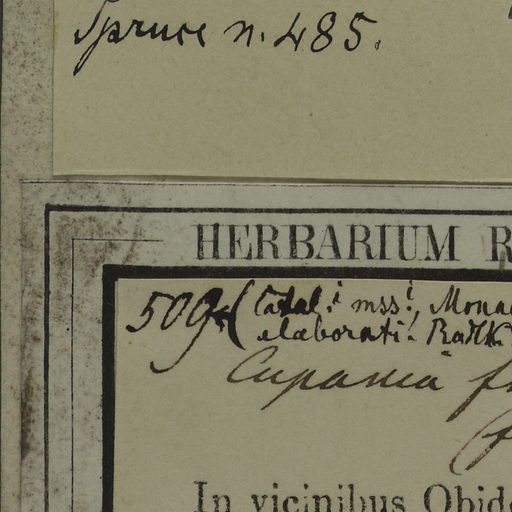 Spruce n. 485.
HERBARIUM R
509. (Catal.i mss.i, Mona
elaborati! Radlk.
Cupania f
(f
In vicinibus Obid